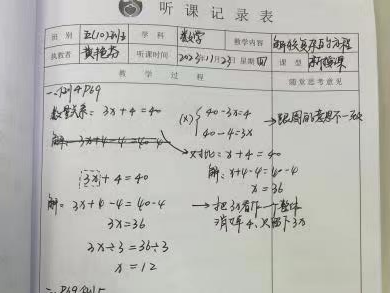 听课记录表
班别 五(10)班 学科 数学 教学内容 解较复杂的方程
执教者 听课时间 2023.11.23 星期四 课型 新授课
教学过程 随堂思考意见
一、例4 P69
数量关系: 3x+4=40 (x) { 40-3x=4 →跟周的意思不一致
40-4=3x
解: 3x+4-4=40-4
对比: x+4=40
3x+4=40 解: x+4-4=40-4
x=36
解: 3x+4-4=40-4 →把3x看作一个整体
3x=36 消去4,只留下3x
3x÷3=36÷3
x=12
二、P69